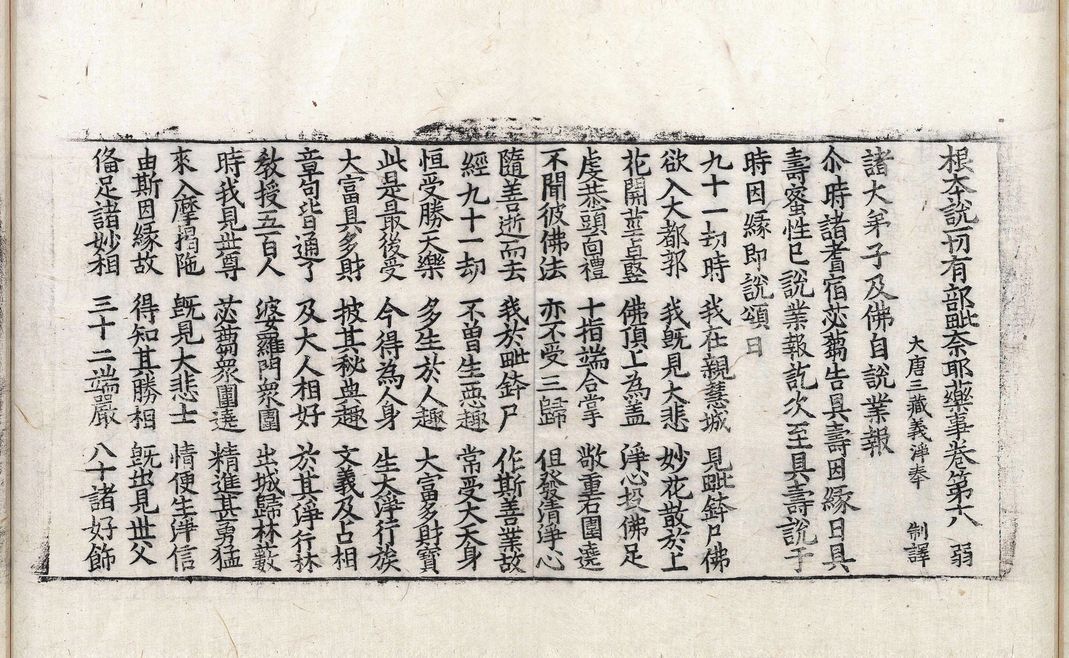 根本說一切有部毗奈耶藥事卷第十八　弱
大唐三藏義淨奉　制譯
諸大弟子及佛自說業報
尒時諸耆宿苾蒭告具壽因緣曰具
壽蜜性已說業報訖次至具壽說于
時因緣即說頌曰
九十一劫時　我在親慧城　見毗鉢尸佛
欲入大都郭　我旣見大悲　妙花散於上
花開莖卓竪　佛頂上為盖　淨心投佛足
虔恭頭面禮　十指端合掌　敬重右圍遶
不聞彼佛法　亦不受三歸　但發清淨心
隨善逝而去　我於毗鉢尸　作斯善業故
經九十一劫　不曾生惡趣　常受大天身
恒受勝天樂　多生於人趣　大富多財寶
此是最後受　今得為人身　生大淨行族
大富具多財　披其秘典趣　文義及占相
章句皆通了　及大人相好　於其淨行林
教授五百人　婆羅門衆圍　出城歸林藪
時我見世尊　苾蒭衆圍遶　精進甚勇猛
來入摩揭陁　旣見大悲士　情便生淨信
由斯因緣故　得知其勝相　旣出見世父
俻足諸妙相　三十二端嚴　八十諸好飾